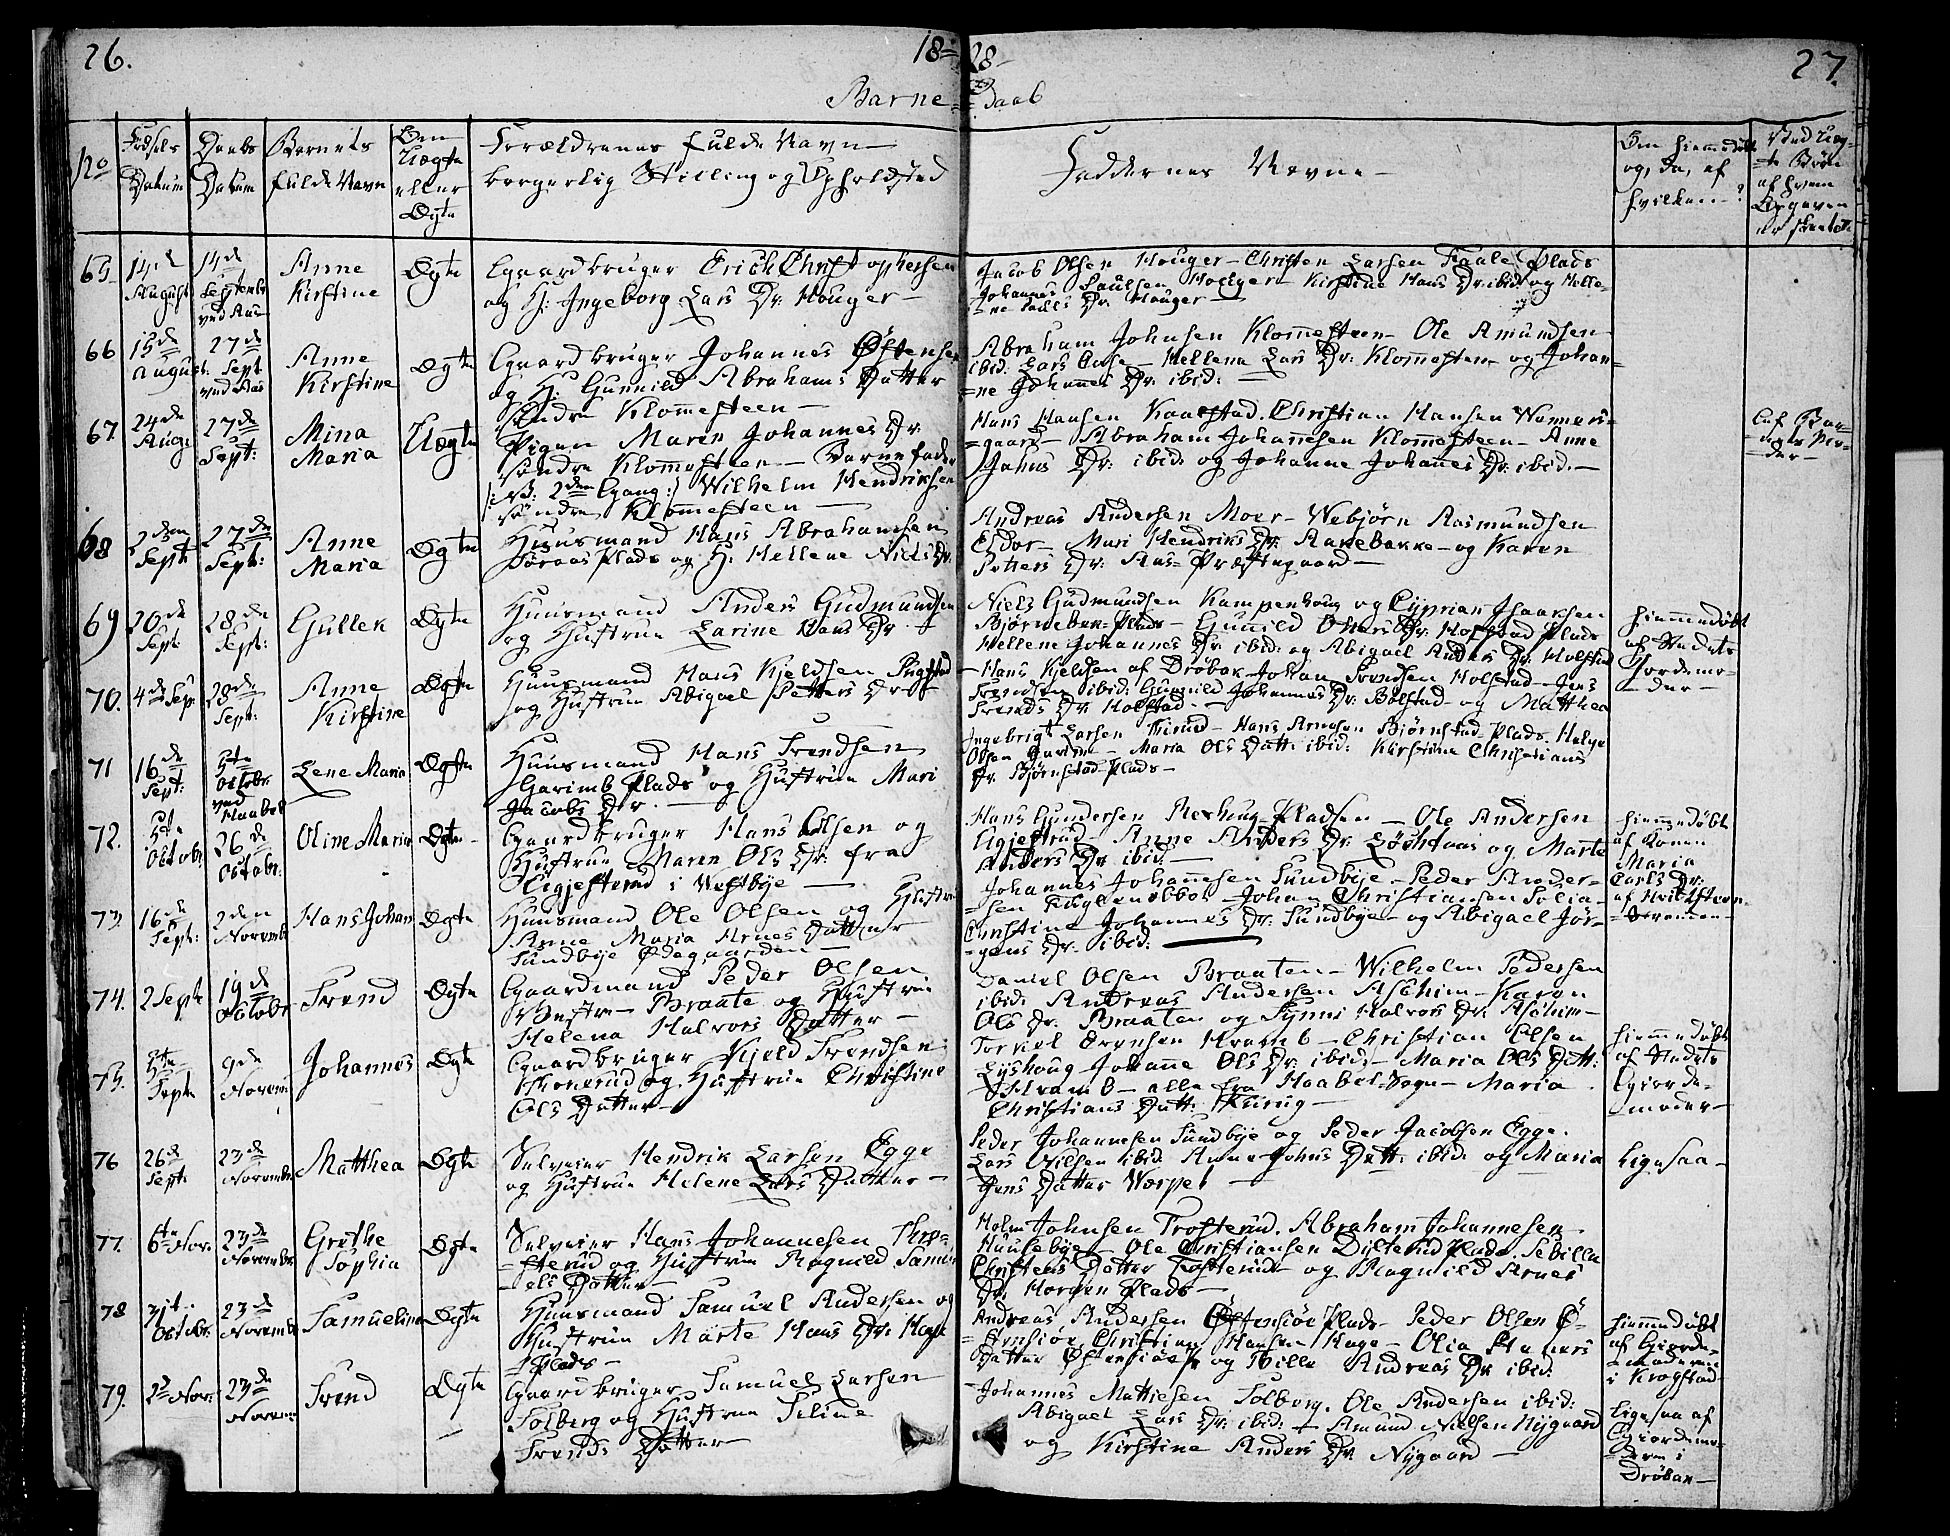 26.
18=
28-
27.
Barne=
=Daab
No
Fødsels
Datum
Daabs
Datum
Barnets
fulde Navn
Om
Uægte
eller
Ægte
Forældrenes fulde Navn
borgerlig Stilling og Opholdsted
Faddernes Navne-
Om hiemmedøbt
og, da, af
hvilken-?
Ved Uæg-
te Børn
af hvem
Opgaven
er skeet
65
14de
August
14de
Septembr
ved Aas
Anne
Kirstine
Ægte
Gaardbruger Erich Christophersen
og H: Ingeborg Lars Dr. Houger-
Jacob Olsen Houger- Christen Larsen Plads
Johannes Paulsen Houger- Kirstine Hans Dr. ibid og Helle-
=ne Pauls Dr. Houger-
66
15de
August
27de
Sept:
ved Aas
Anne
Kirstine
Ægte
Gaardbruger Johannes Østensen
og H: Gunnild Abrahams Datter
søndre Klommesteen-
Abraham Johnsen Klommesteen- Ole Amundsen
ibid: Lars - Hellena Lars Dr: Klommesteen og Johan-
=ne Johannes Dr: ibid:-
67
24de
Aug:
27de
Sept:
Mina
Maria
Uægte
Pigen Maren Johannes Dr
søndre Klommesteen- Barnefader
/: NB: 2den Gang:/ Wilhelm Hendriksen
søndre Klommesteen-
Hans Hansen Kaarstad. Christian Hansen
=gaard- Abraham Johannesen Klommesteen- Anne
Dr: ibid: og Johanne Johannes Dr. ibid.-
68
2den
Sept:
27de
Sept:
Anne
Maria
Ægte
Huusmand Hans Abrahamsen
Plads og H: Hellene Niels Dr.
Andreas Andersen Moer- Webjørn Rasmundsen
- Mari Hendriks Dr: Aarebakke- og Karen
Petters Dr: Aas-Præstegaard-
69
20de
Sept
28de
Sept:
Gullek
Ægte
Huusmand Anders Gudmundsen
og Hustrue Larine Hans Dr-
Niels Gudmundsen Kampenhoug og Cyprian Isaaksen
Plads- Gunild Dr: Holstad Plads
Hellene Johannes Dr. ibid: og Abigael Anders Dr. Holstad
hiemmedøbt
af Stedets
Jordemo-
=der-
70.
4de Sep:
28de
Sept:
Anne
Kirstine
Ægte
Huusmand Hans Kjeldsen
og Hustrue Abigael Petters Dr-
-Hans Kjeldsen af Drøbak- Johan Svendsen Holstad- Jens
Svendsen ibid: Gunnild Johannes Dr: Bølstad- og Matthea
Svends Dr. Holstad.-
71
16de
Sept:
5te
October
ved
Haabel
Lene Maria
Ægte
Huusmand Hans Svendsen
Garimb Plads og Hustrue Mari
Jacobs Dr.-
Ingebrigt Larsen - Hans Arnesen Bjørnstad-Plads. Helge
Olsen - Maria Ols Datt: ibid: Kirstine Christians
Dr. Bjørnstad-Plads-
72.
5te
Octobr:
26de
Octobr:
Oline Maria
Ægte
Gaardbruger Hans Olsen og
Hustrue Maren Ols Dr: fra
i Westbye-
Hans Gundersen Pladsen- Ole Andersen
- Anne Anders Dr. og Marte
Anders Dr ibid:-
hiemmedøbt
af Konen
Maria
Carls Dr:
af
73.
16de
Sept:
2den
Novembr
Hans Johan
Ægte
Huusmand Ole Olsen og Hustrue
Anne Maria Arnes Datter
Sundbye Ødegaarden-
Johannes Johannesen Sundbye- Peder Ander-
=sen - Johan Christiansen
Christine Johannes Dr: Sundbye- og Abigael Jør-
=gens Dr. ibid:
74.
2 Sept
19de
Octobr
Svend
Ægte
Gaardmand Peder Olsen
Braate og Hustrue
Helena Halvors Datter-
Daniel Olsen Braaten- Wilhelm Pedersen
ibid: Andreas Andersen Aschim- Karen
Ols Dr. Braaten og Synni Halvors Dr. Aschim-
75.
5te
Sept
9de
Novem:
Johannes
Ægte
Gaardbruger Kjeld Svendsen
og Hustrue Christine
Ols Datter-
Evensen Kramb- Christian Olsen
Lyshoug Johanne Ols Dr. ibid:- Maria Ols Datt:
Kramb- alle fra Haabel-Sogn- Maria
Christians Datt:
hiemmedøbt
af Stedets
Giorde-
moder-
76
26de
Sept:
23de
Novembr.
Matthea
Ægte
Selveier Hendrik Larsen Egge
og Hustrue Helene Lars Datter-
Peder Johannesen Sundbye og Peder Jacobsen Egge.
Lars Nilsen ibid Anne Johns Datt: ibid: og Maria
Jens Datter-
Ligesaa-
77.
6te Nov:
23de
Novembr.
Grethe
Sophia
Ægte
Selveier Hans Johannesen Thro-
=sterud og Hustrue Ragnild Samu-
=els Datter-
Holm Johnsen Trosterud. Abraham Johannesen
Huusebye- Ole Christiansen Dytterud Plads. Sebilla
Christens Datter Trosterud- og Ragnild Arnes
Dr. Plads-
78
31te
Octobr.
23de
Novembr
Samueline
Ægte
Huusmand Samuel Andersen og
Hustrue Marte Hans Dr. Hage
Plads-
Andreas Andersen Østensiøe Plads- Peder Olsen Ø-
=stensiøe, Christian Hansen Hage- Olia
Datter Østensiøe og Andreas Dr ibid:
hiemmedøbt
af Giorde-
=moderen
i Krogstad
79.
2d Nov:
23de
Novem:
Svend
Ægte
Gaardbruger Samuel Larsen
Solberg og Hustrue Seline
Svends Datter
Johannes Mathiesen Solberg. Ole Andersen ibid:
Abigael Lars Dr: ibid:- Amund Nielsen Nygaard
og Kirstine Anders Dr Nygaard-
Ligesaa af
Giordemo-
=deren i
Drøbak-